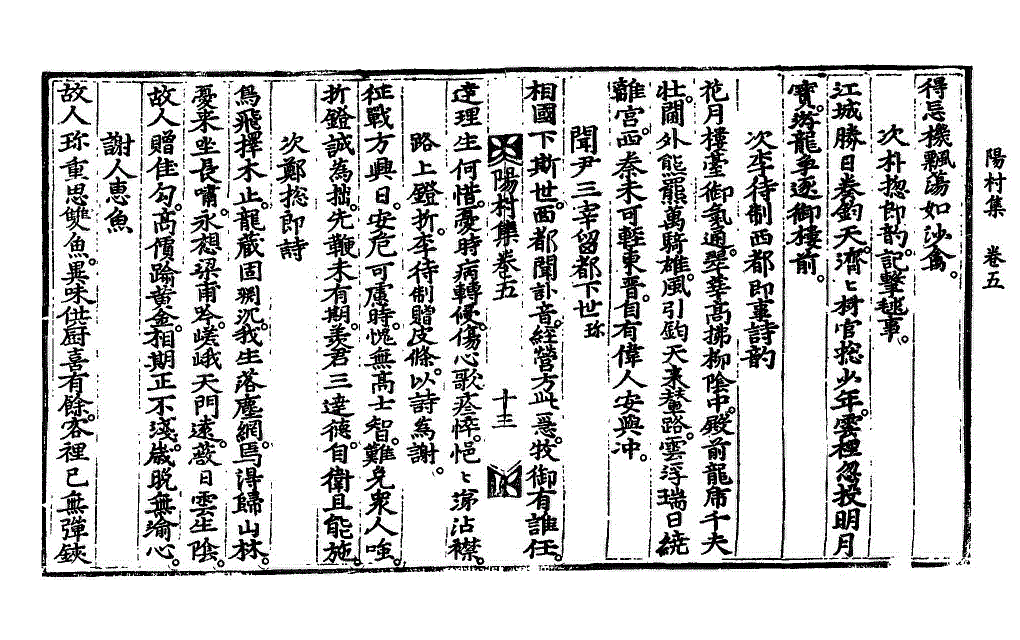 陽村集 卷五
得忘機飄蕩如沙禽。
次朴揔郎韵。記擊毬事。
江城勝日奏鈞天。濟〻材官捴少年。雲裡忽投明月
寶。龍爭逐御樓前。
次李待制西都即事詩韵
花月樓臺御氣通。翠華高拂柳陰中。殿前龍虎千夫
壯。閫外熊羆萬騎雄。風引鈞天来輦路。雲浮瑞日繞
離宮。西秦未可輕東晋。自有偉人安與冲。
聞尹三宰留都下世 珎
相國下斯世。西都聞訃音。經營方此急。牧御有誰任。
陽村集卷五 十三
達理生何惜。憂時病轉侵。傷心歌殄瘁。悒〻淚沾襟。
路上鐙折。李待制贈皮條。以詩為謝。
征戰方興日。安危可慮時。愧無高士智。難免衆人嗤。
折鐙誠為拙。先鞭未有期。羡君三達德。自衛且能施。
次鄭捴郎詩
鳥飛擇木止。龍蔵固淵沉。我生落塵網。焉得歸山林。
憂来坐長嘯。永想梁甫吟。嵯峨天門遠。蔽日雲生陰。
故人贈佳句。高價踰黃金。相期正不淺。歲晚無渝心。
謝人惠魚
故人珎重思雙魚。異味供厨喜有餘。客裡已無彈鋏